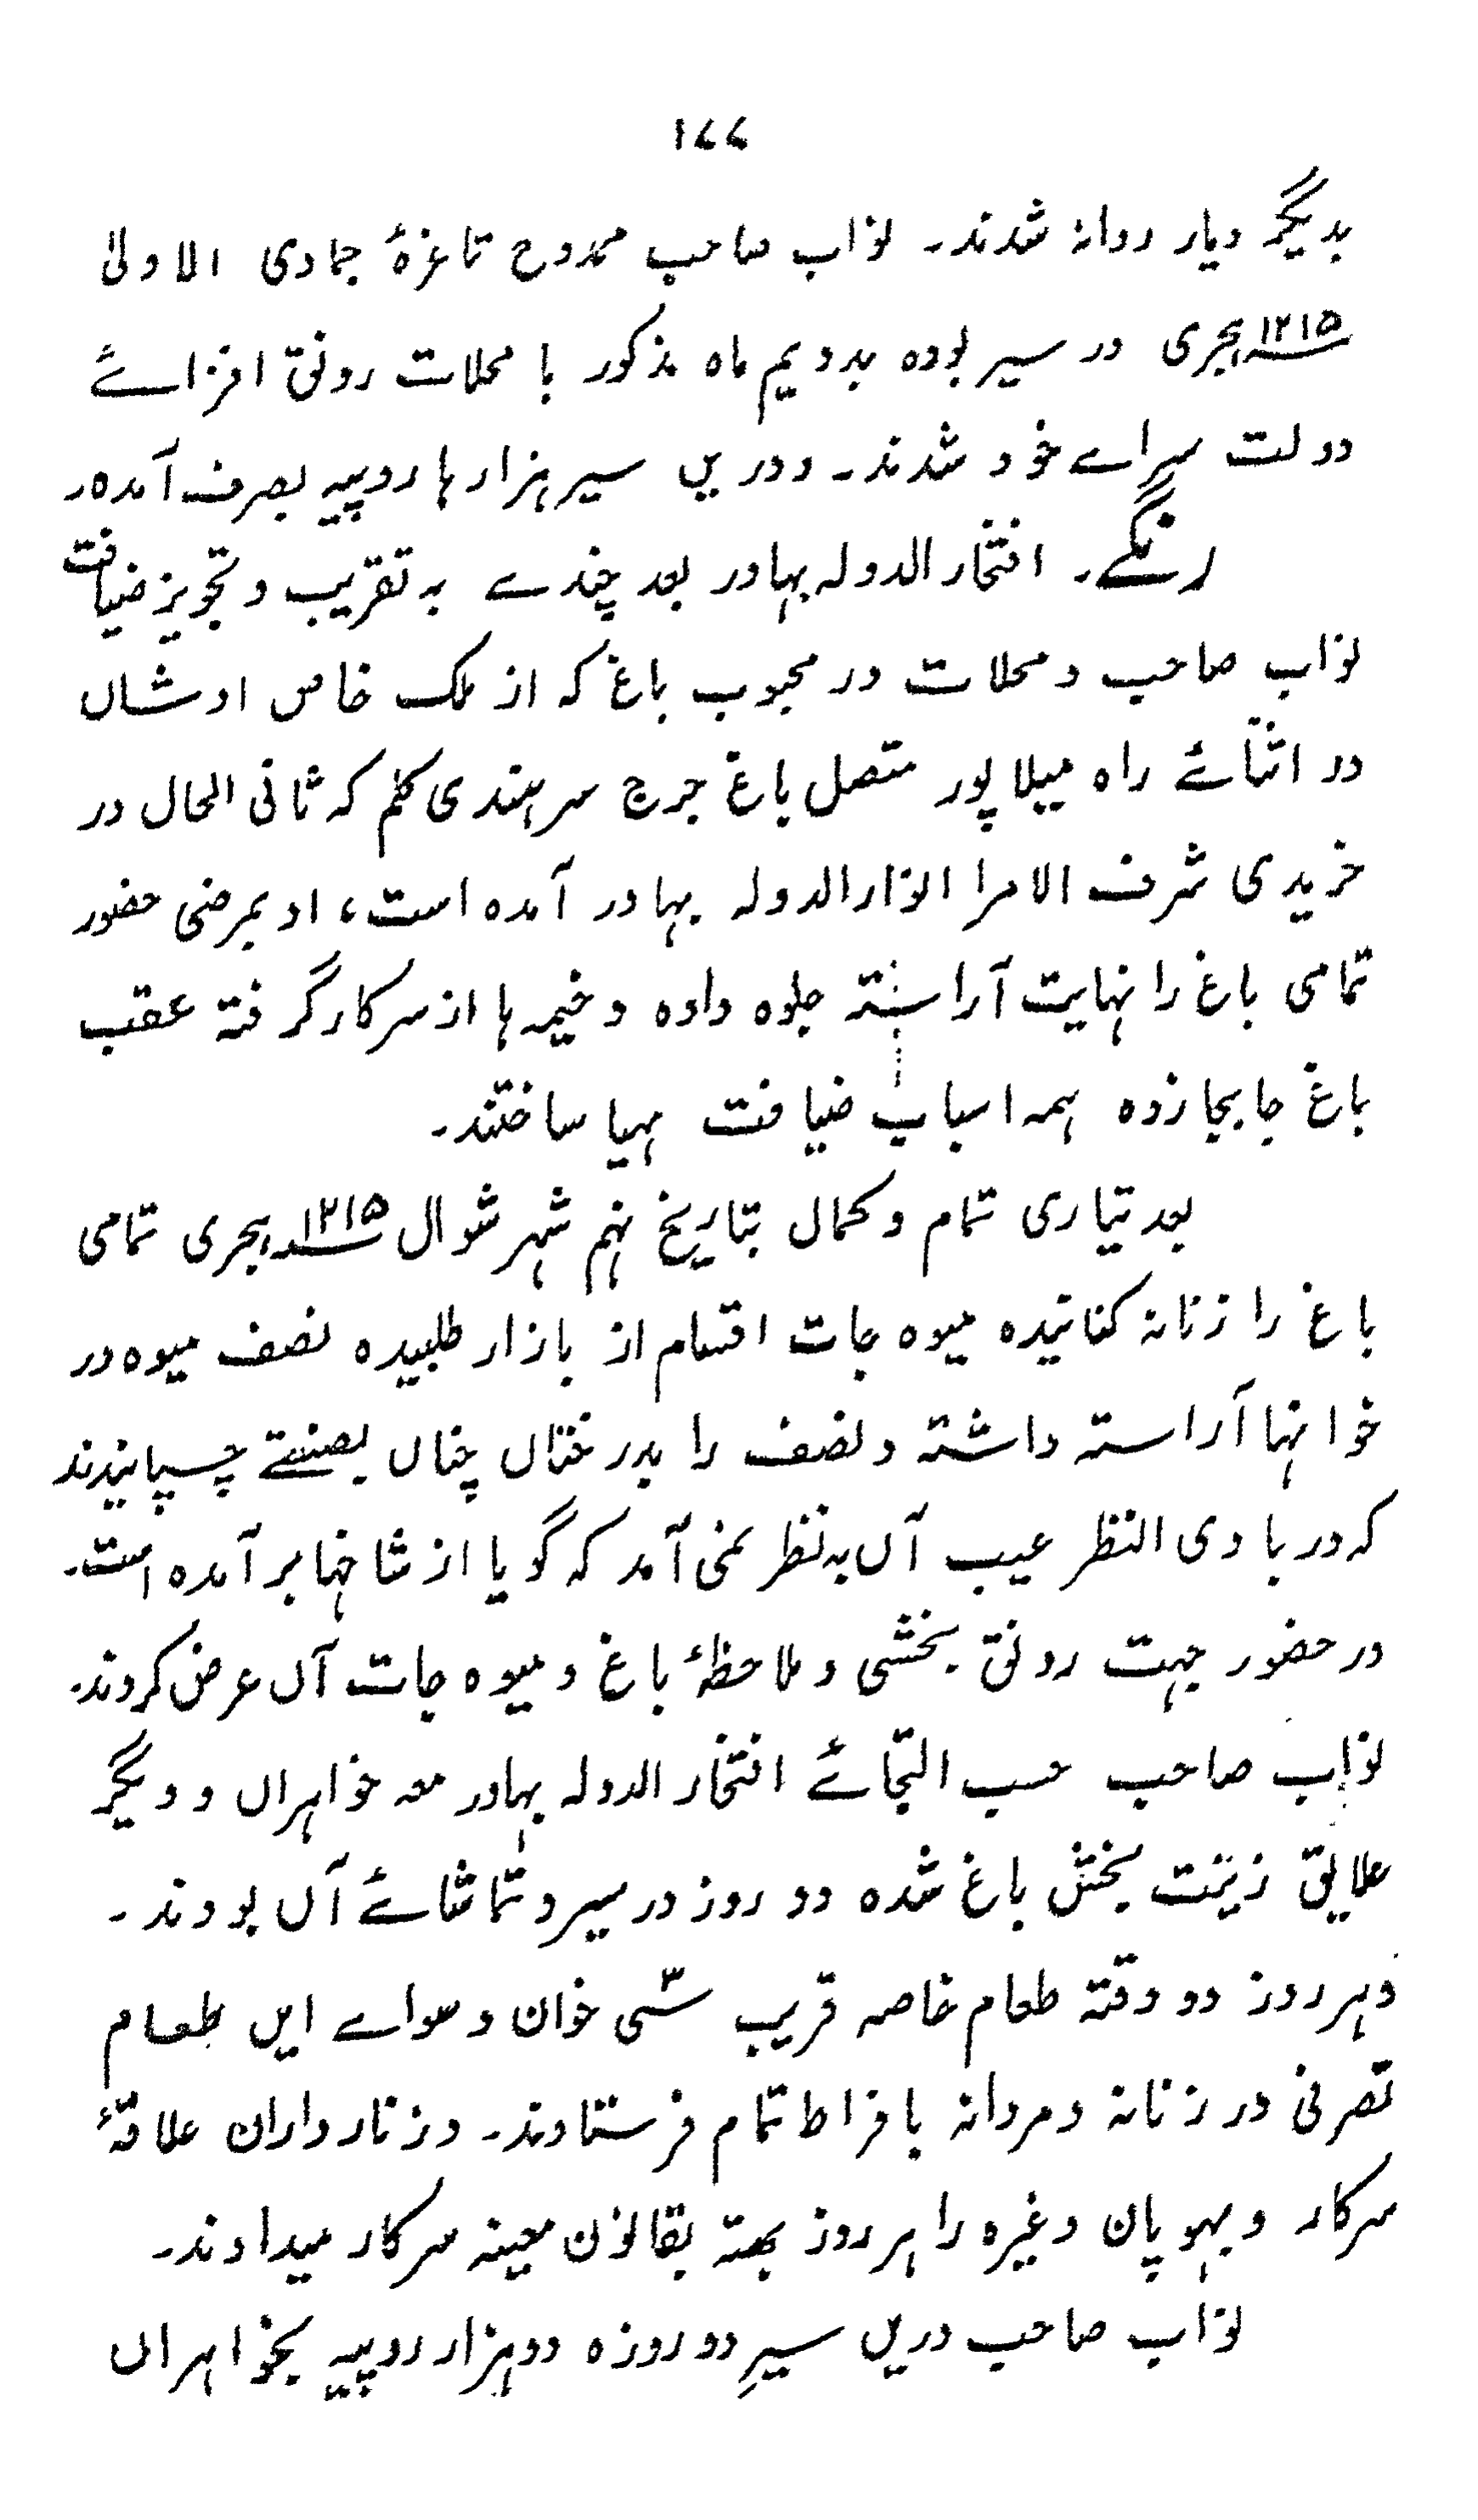 ۱۷۷
بدیگر دیار روانہ شدند۔ نواب صاحب ممدوح تا غرۂ جمادی الاولیٰ
۱۲۱۵؁ ہجری در سیر بودہ بدویم ماہ مذکور با محلات رونق افزائے
دولت سراے خود شدند۔ و دریں سیر ہزارہا روپیہ بصرف آمدہ۔
رنگے۔ افتخار الدولہ بہادر بعد چندے بہ تقریب و تجویز ضیافت
نواب صاحب و محلات در محبوب باغ کہ از ملک خاص اوشاں
در اثنائے راہ میلاپور متصل باغ جرج سرہندی کلم کہ ثانی الحال در
خریدی شرف الامرا انوار الدولہ بہادر آمدہ است، او بمرضی حضور
تمامی باغ را نہایت آراستہ جلوہ دادہ و خیمہ ہا از سرکار گرفتہ عقب
باغ جابجا زدہ ہمہ اسباب ضیافت مہیا ساختند۔
بعد تیاری تمام و کمال بتاریخ نہم شہر شوال ۱۲۱۵؁ ہجری تمامی
باغ را زنانہ کنانیدہ میوہ جات اقسام از بازار طلبیدہ نصف میوہ در
خوانہا آراستہ داشتہ و نصف را بدرختاں چناں بصنعتے چسپانیدند
کہ در بادی النظر عیب آں بہ نظر نمی آمد کہ گویا از شاخہا برآمدہ است۔
در حضور جہت رونق بخشی و ملاحظۂ باغ و میوہ جات آں عرض کردند۔
نواب صاحب حسب التجائے افتخار الدولہ بہادر معہ خواہراں و دیگر
علایق زینت بخش باغ شدہ دو روز در سیر و تماشائے آں بودند۔
و ہر روز دو وقتہ طعام خاصہ قریب سّی خوان و سواے ایں طعام
تصرفی در زنانہ و مردانہ بافراط تمام فرستادند۔ و زنارداران علاقۂ
سرکار و بہوپان وغیرہ را ہر روز بھتہ بقانون معینہ سرکار میدادند۔
نواب صاحب دریں سیرِ دو روزہ دو ہزار روپیہ بخواہراں